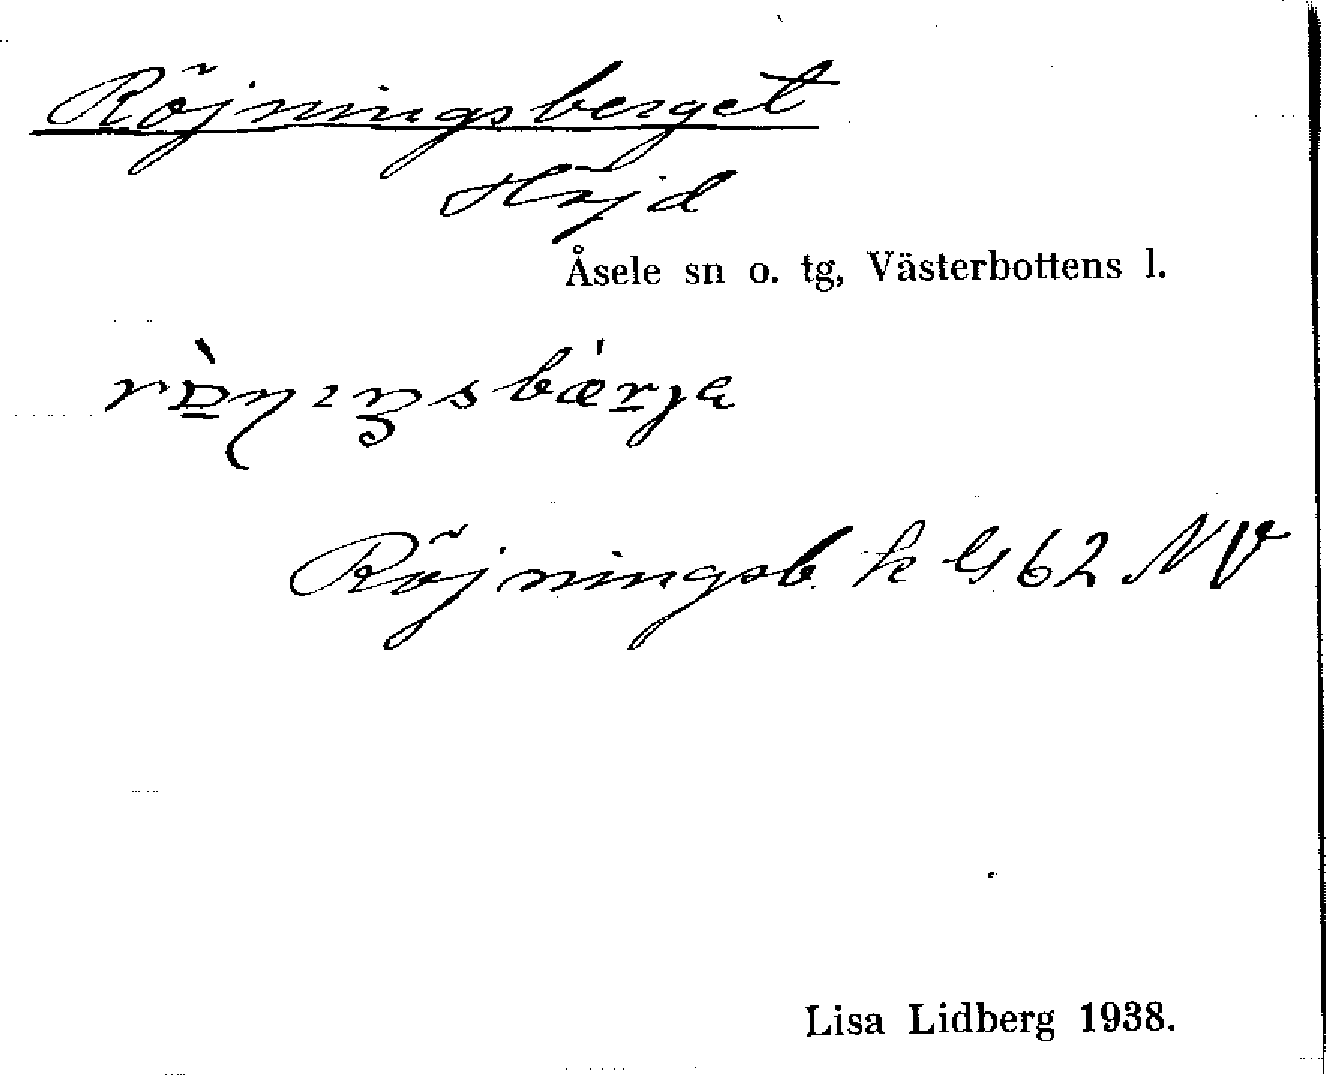 Röjningsberget
Höjd
Åsele sn o. tg, Västerbottens l.
Röjningsb. k G 62 NV
Lisa Lidberg 1938.